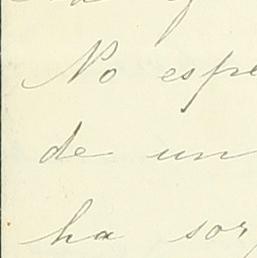 No espe
de un
ha sor